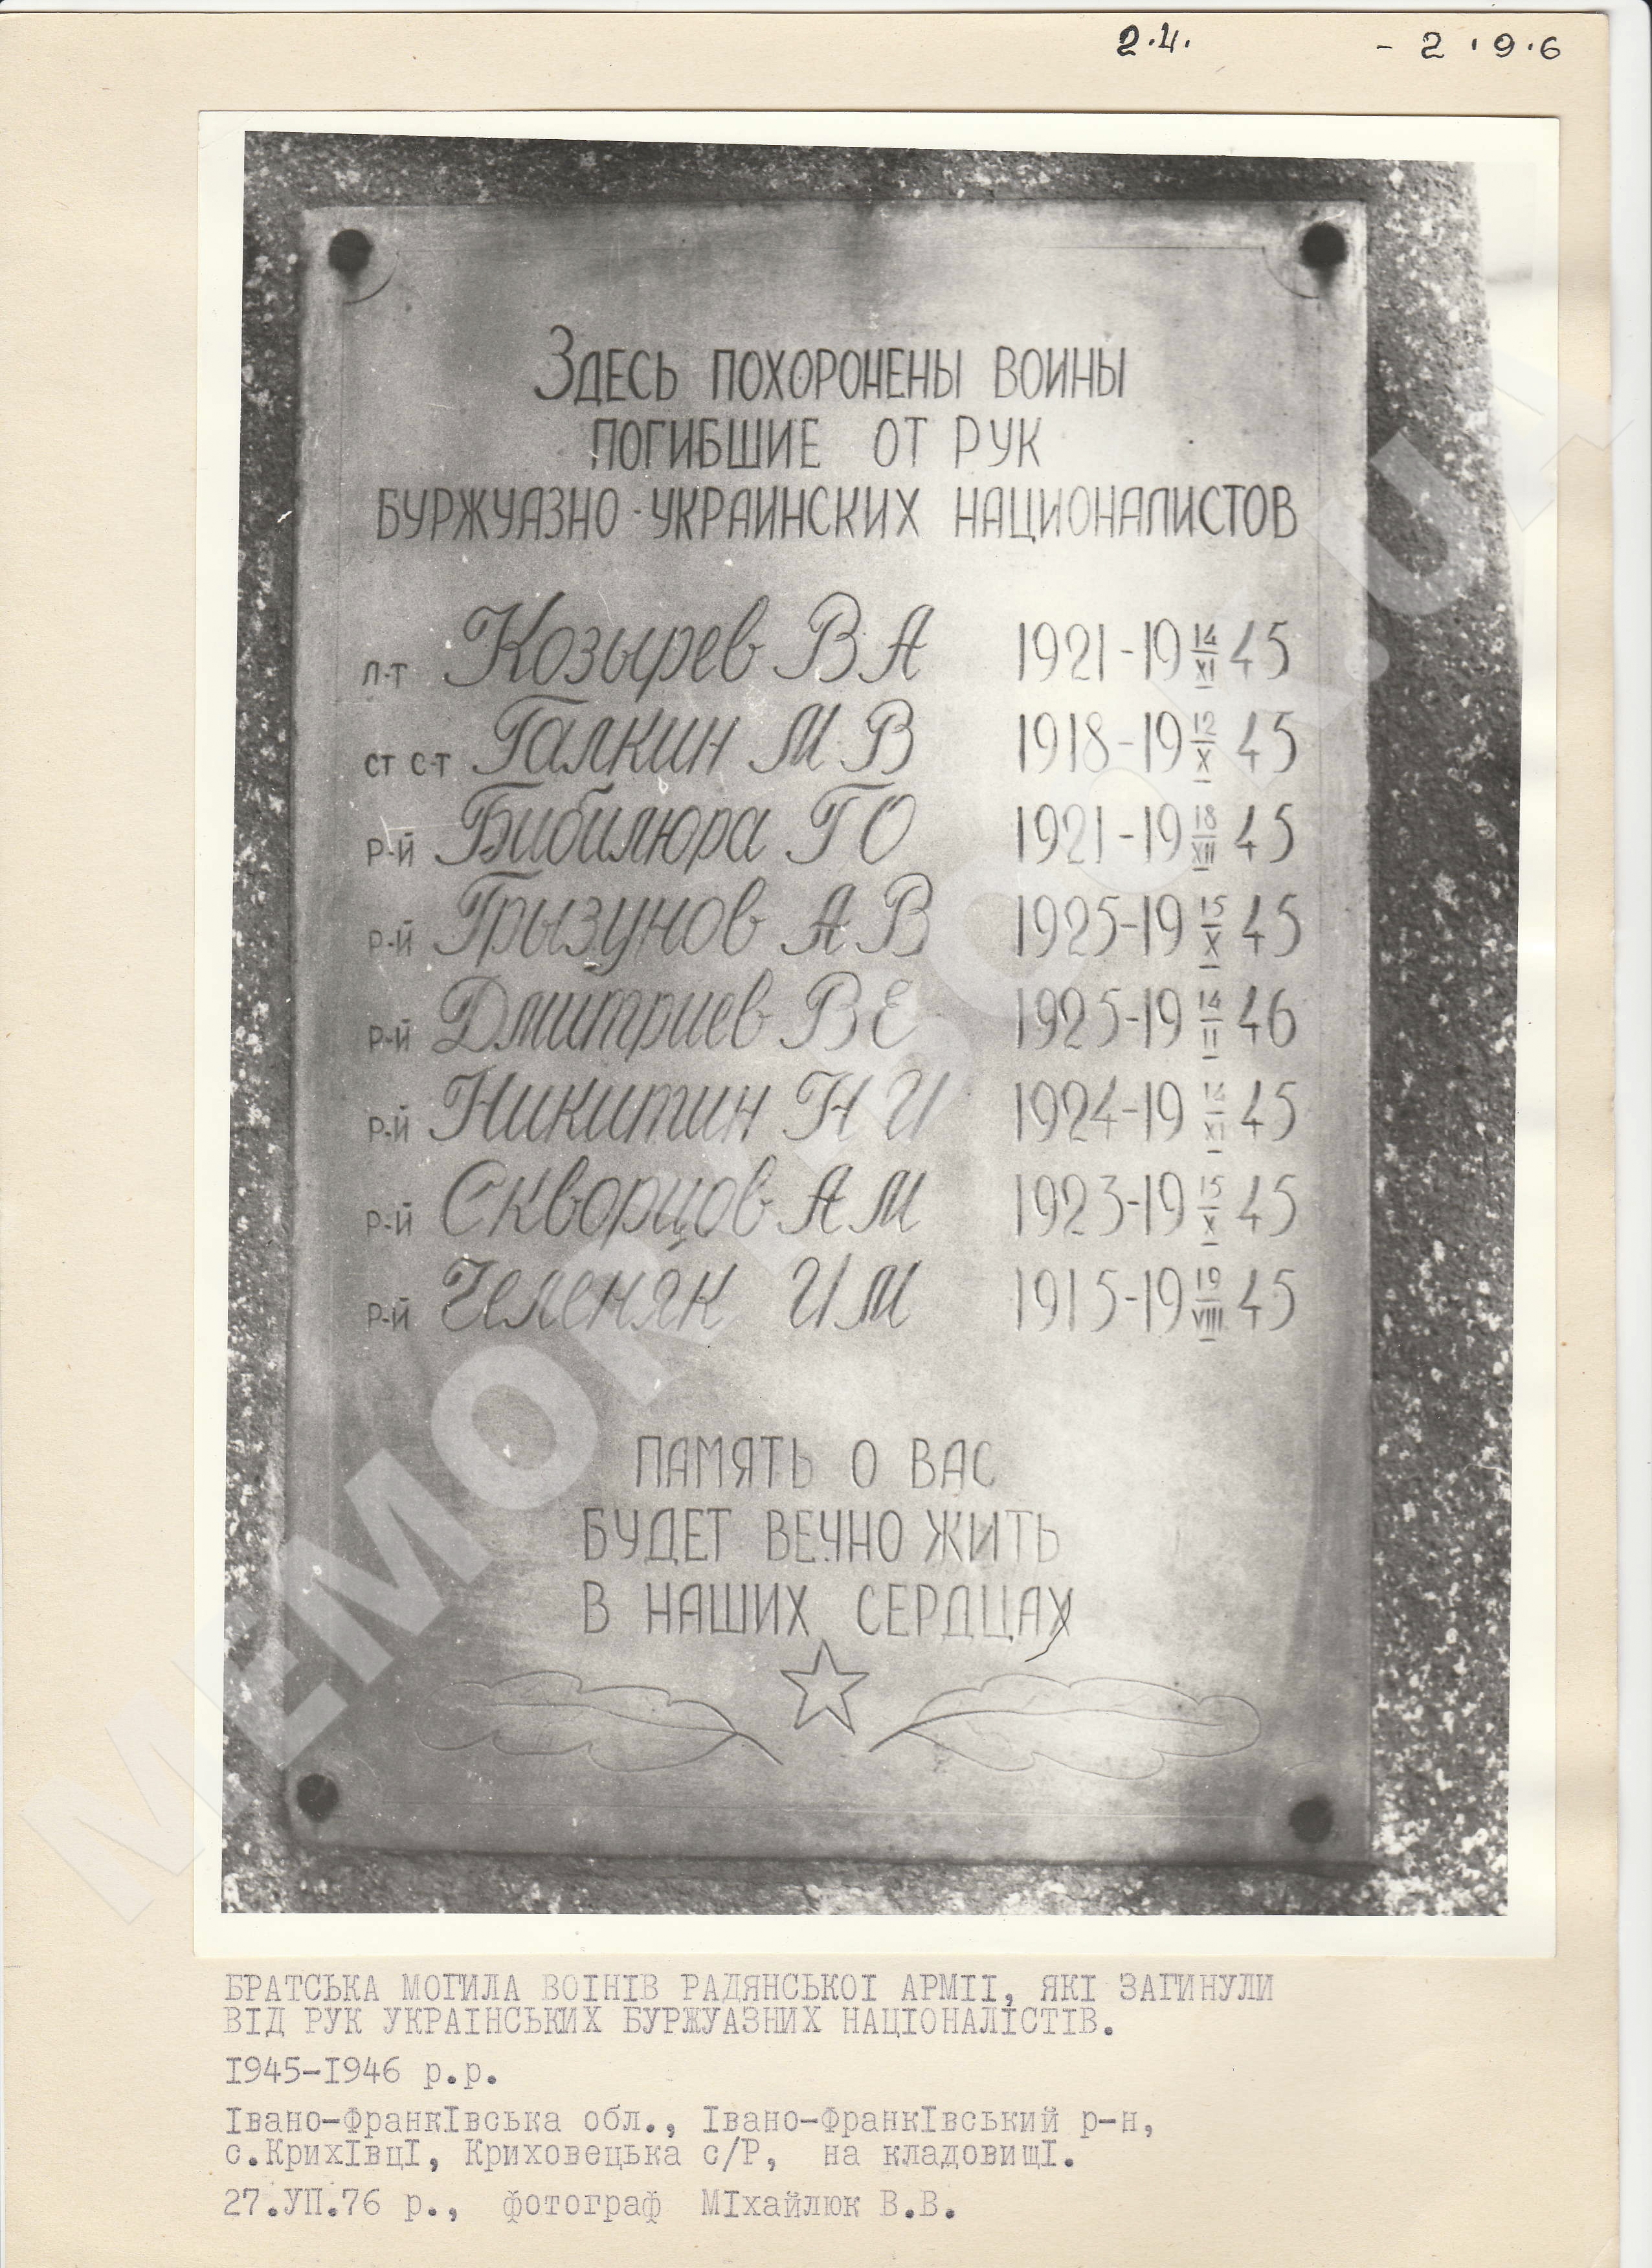 2.4. - 2.9.6
Здесь похоронены воины
погибшие от рук
буржуазно-украинских националистов
л-т Козырев В А 1921-19 14/XI 45
ст с-т Галкин М В 1918-19 12/X 45
р-й Бибилюра Г О 1921-19 18/XII 45
р-й Грызунов А В 1925-19 15/X 45
р-й Дмитриев В Е 1925-19 14/II 46
р-й Никитин Н И 1924-19 14/XI 45
р-й Скворцов А М 1923-19 15/X 45
р-й Челеняк И М 1915-19 19/VIII 45
ПАМЯТЬ О ВАС
БУДЕТ ВЕЧНО ЖИТЬ
В НАШИХ СЕРДЦАХ
БРАТСЬКА МОГИЛА ВОІНІВ РАДЯНСЬКОІ АРМІІ, ЯКІ ЗАГИНУЛИ
ВІД РУК УКРАІНСЬКИХ БУРЖУАЗНИХ НАЦІОНАЛІСТІВ.
I945-I946 р.р.
Івано-ФранкІвська обл., Івано-ФранкІвський р-н,
с.КрихІвцІ, Криховецька с/Р, на кладовищІ.
27.УП.76 р., фотограф МІхайлюк В.В.